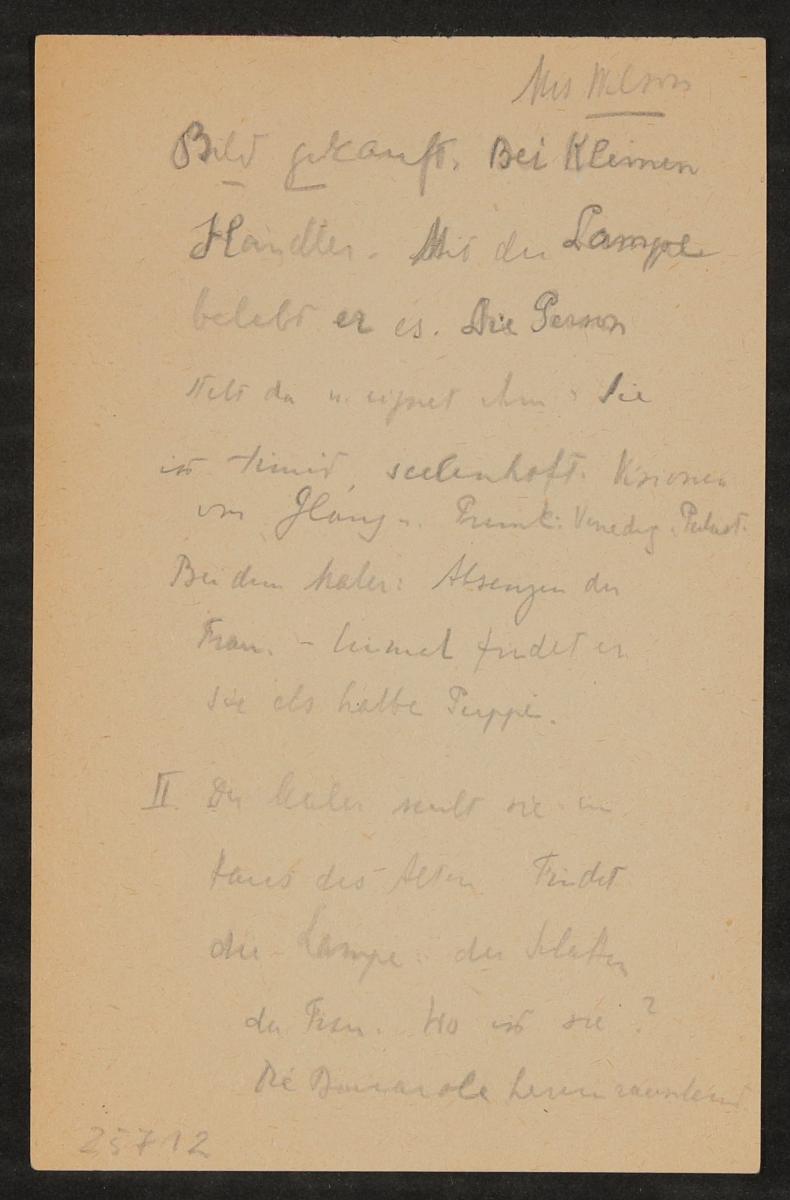 Mrs Wilson
Bild gekauft. Bei Kleinen
Händler. Mit der Lampe
belebt er es. Die Person
steht da u. eignet ihm. Sie
ist timid, seelenhaft. Visionen
von Glanz u. Prunk: Venedig. Palast.
Bei dem Maler: Absenzen der
Frau. – Einmal findet er
sie als halbe Puppe.
II. Der Maler sucht sie im
Haus des Alten Findet
die Lampe: den Schatten
der Frau. Wo ist sie?
Die Barcarole
25712